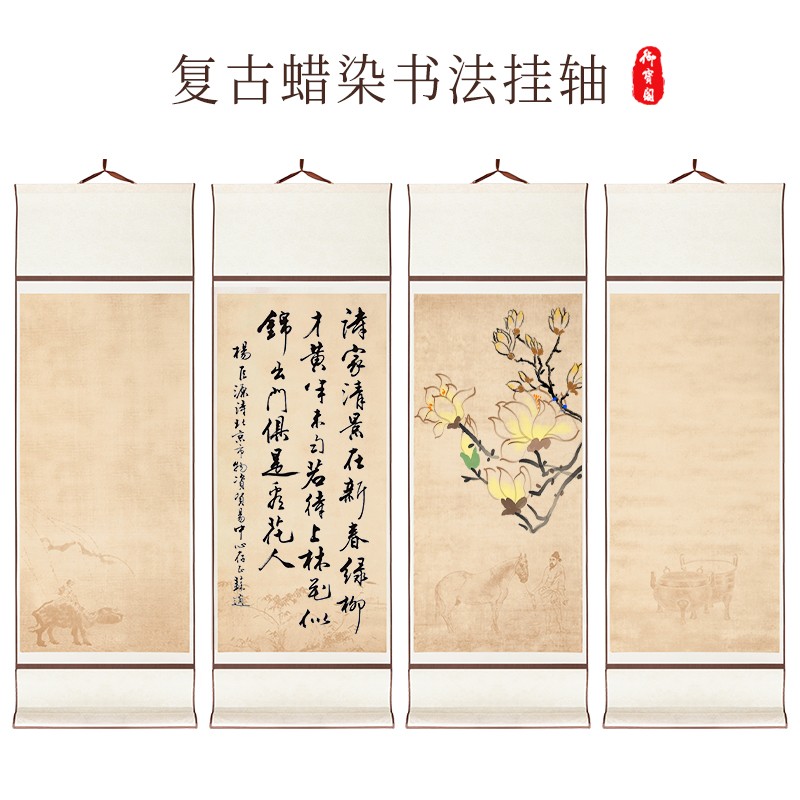 复古蜡染书法挂轴
御寶閣
詩家清景在新春绿柳
才黄半未匀若待上林花似
錦出門俱是看花人
楊巨源诗北京市物資貿易中心存正蘇適